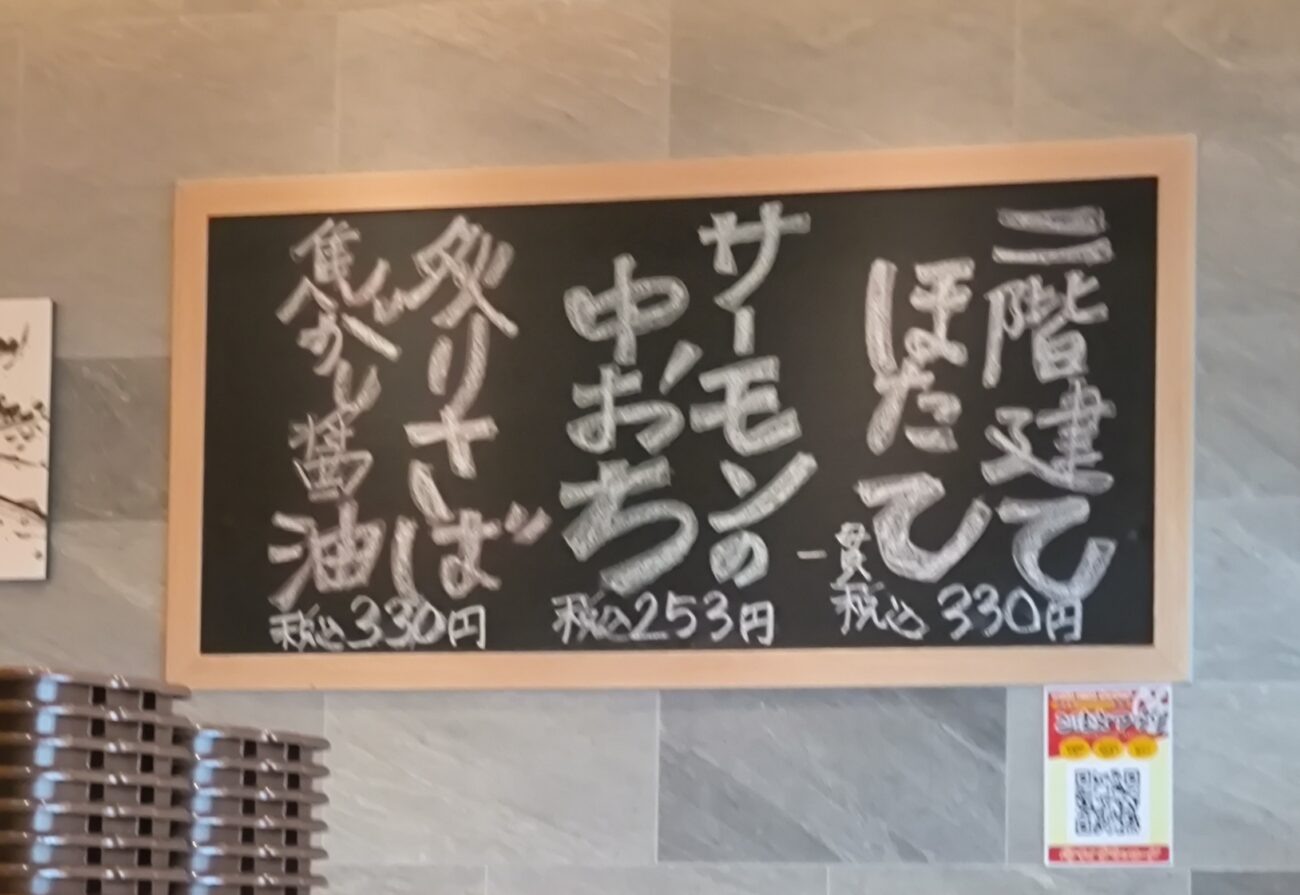 二階建て
ほたて
一貫
税込330円
サーモンの
中おち
税込253円
炙りさば
焦がし醤油
税込330円